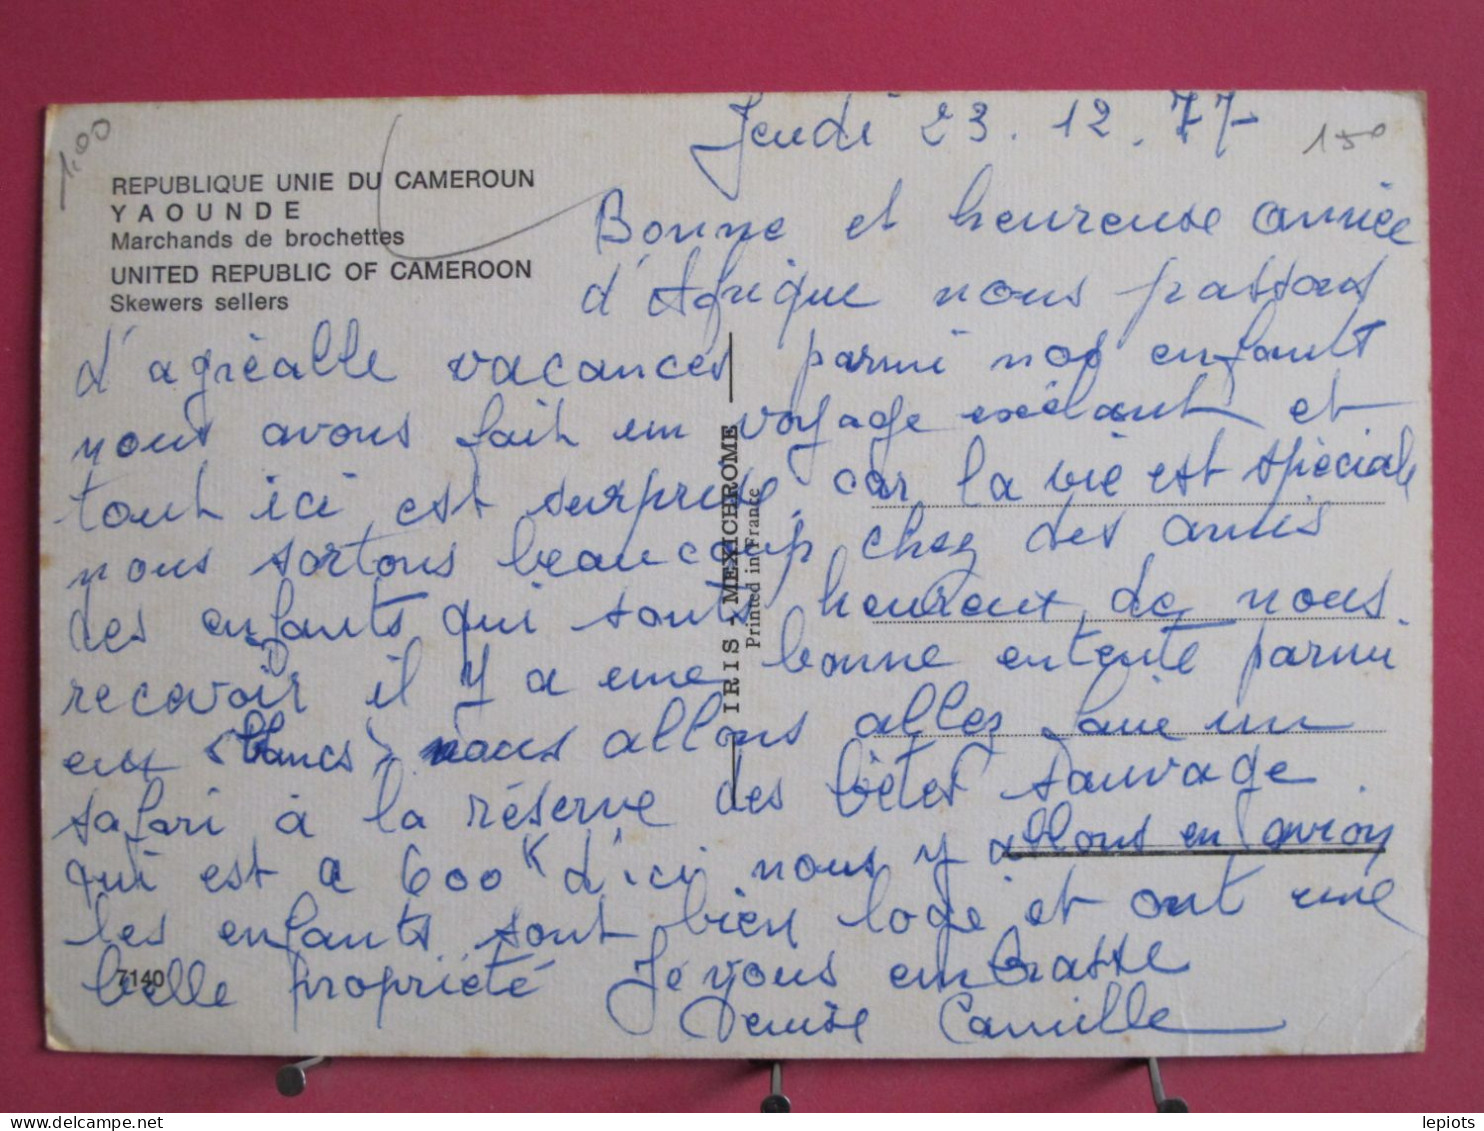 Jeudi 23.12.77
1,00
150
REPUBLIQUE UNIE DU CAMEROUN
YAOUNDE
Marchands de brochettes
UNITED REPUBLIC OF CAMEROON
Skewers sellers
Bonne et heureuse année
d'Afrique nous passons
d'agréable vacances parmi nos enfants
nous avons fait un voyage exélant et
tout ici est surprise car la vie est spécial
nous sortons beaucoup chez des amis
des enfants qui sont heureux de nous
recevoir il y a une bonne entente parmi
eux (blancs) nous allons allez faire un
safari à la réserve des bêtes sauvage
qui est a 600 K d'ici nous y allons en avion
les enfants sont bien logé et ont une
belle propriété Je vous embrasse
Denise Camille
7140
IRIS - MEXICHROME
Printed in France
lepiots
delcampe.net